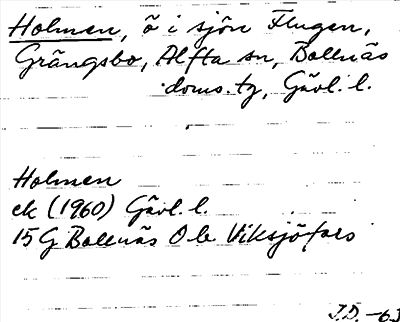 Holmen, ö i sjön Flugen,
Grängsbo, Alfta sn, Bollnäs
doms. tg, Gävl. l.
Holmen
ek (1960) Gävl. l.
15 G Bollnäs 0 b Viksjöfors
J.D. -63